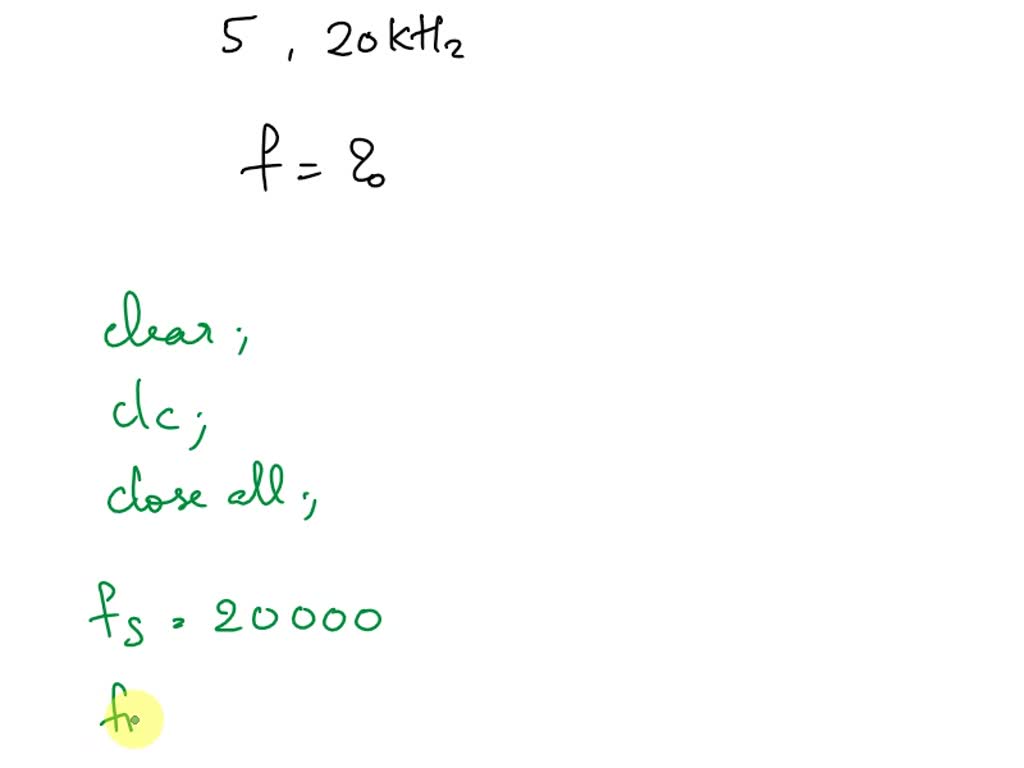 5 , 20kHz
f = ?
clear ;
clc ;
close all ;
fs = 20000
f